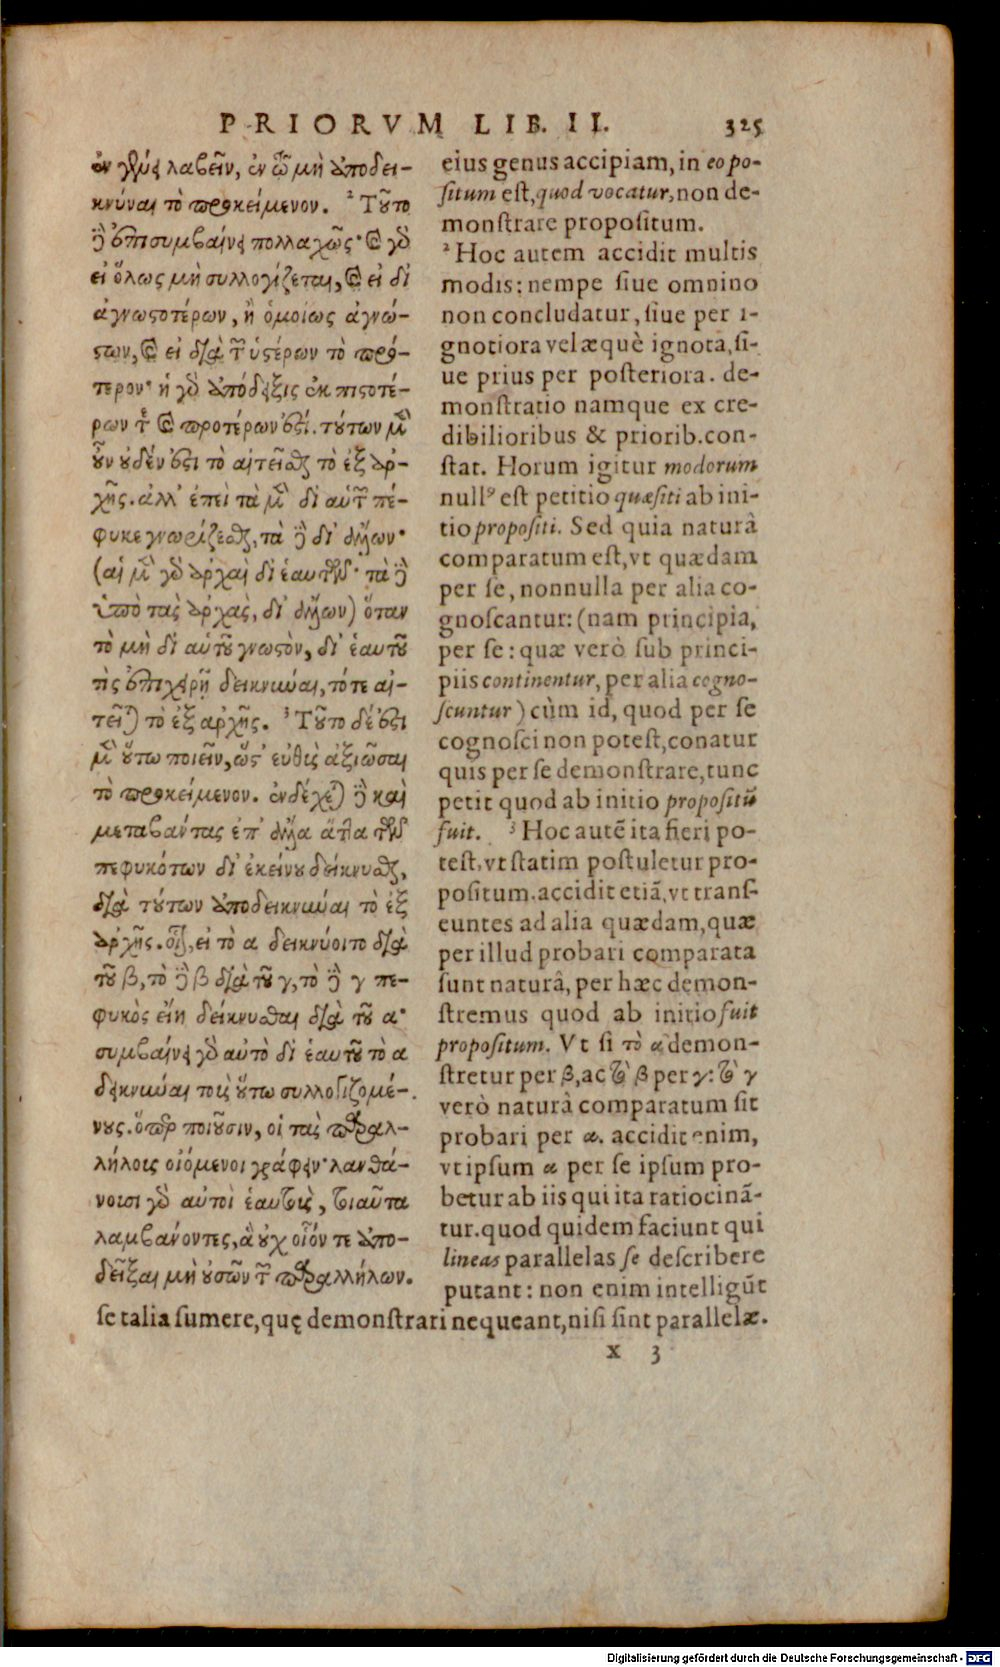 PRIORVM LIB. II. 325
ἐν γένει λαβεῖν, ἐν ᾧ μὴ ἀποδει-
κνύναι τὸ προκείμενον. ² Τοῦτο
δὲ ἐπισυμβαίνει πολλαχῶς· καὶ γὰρ
εἰ ὅλως μὴ συλλογίζεται, καὶ εἰ δι'
ἀγνωστοτέρων, ἢ ὁμοίως ἀγνώ-
στων, καὶ εἰ διὰ τῶν ὑστέρων τὸ πρό-
τερον· ἡ γὰρ ἀπόδειξις ἐκ πιστοτέ-
ρων τε καὶ προτέρων ἐστί. τούτων μὲν
οὖν οὐδέν ἐστι τὸ αἰτεῖσθαι τὸ ἐξ ἀρ-
χῆς. ἀλλ' ἐπεὶ τὰ μὲν δι' αὑτῶν πέ-
φυκε γνωρίζεσθαι, τὰ δὲ δι' ἄλλων·
(αἱ μὲν γὰρ ἀρχαὶ δι' ἑαυτῶν· τὰ δὲ
ὑπὸ τὰς ἀρχὰς, δι' ἄλλων) ὅταν
τὸ μὴ δι' αὑτοῦ γνωστὸν, δι' ἑαυτοῦ
τὶς ἐπιχειρῇ δεικνύναι, τότε αἰ-
τεῖται τὸ ἐξ αρχῆς. ³ Τοῦτο δέ ἐστι
μὲν οὕτω ποιεῖν, ὥς' εὐθὺς ἀξιῶσαι
τὸ προκείμενον. ἐνδέχεται δὲ καὶ
μεταβάντας ἐπ' ἄλλα ἄττα τῶν
πεφυκότων δι' ἐκείνου δείκνυσθαι,
διὰ τούτων ἀποδεικνύναι τὸ ἐξ
ἀρχῆς. οἷον, εἰ τὸ α δεικνύοιτο διὰ
τοῦ β, τὸ δὲ β διὰ τοῦ γ, τὸ δὲ γ πε-
φυκὸς εἴη δείκνυσθαι διὰ τοῦ α·
συμβαίνει γὰρ αὐτὸ δι' ἑαυτοῦ τὸ α
δεικνύναι τοὺς οὕτω συλλογιζομέ-
νους. ὅπερ ποιοῦσιν, οἱ τὰς παραλ-
λήλους οἰόμενοι γράφειν· λανθά-
νουσι γὰρ αὐτοὶ ἑαυτοὺς, τοιαῦτα
λαμβάνοντες, ἃ οὐχ οἷόν τε ἀπο-
δεῖξαι μὴ οὐσῶν τῶν παραλλήλων.
eius genus accipiam, in eo po-
situm est, quod vocatur, non de-
monstrare propositum.
² Hoc autem accidit multis
modis: nempe siue omnino
non concludatur, siue per i-
gnotiora vel æquè ignota, si-
ue prius per posteriora. de-
monstratio namque ex cre-
dibilioribus & priorib. con-
stat. Horum igitur modorum
null⁹ est petitio quæsiti ab ini-
tio propositi. Sed quia naturâ
comparatum est, vt quædam
per se, nonnulla per alia co-
gnoscantur: (nam principia,
per se: quæ verò sub princi-
piis continentur, per alia cogno-
scuntur) cùm id, quod per se
cognosci non potest, conatur
quis per se demonstrare, tunc
petit quod ab initio propositū
fuit. ³ Hoc autē ita fieri po-
test, vt statim postuletur pro-
positum. accidit etiā, vt trans-
euntes ad alia quædam, quæ
per illud probari comparata
sunt naturâ, per hæc demon-
stremus quod ab initio fuit
propositum. Vt si τὸ α demon-
stretur per β, ac τὸ β per γ: τὸ γ
verò naturâ comparatum sit
probari per α. accidit enim,
vt ipsum α per se ipsum pro-
betur ab iis qui ita ratiocinā-
tur. quod quidem faciunt qui
lineas parallelas se describere
putant: non enim intelligūt
se talia sumere, quę demonstrari nequeant, nisi sint parallelæ.
x 3
Digitalisierung gefördert durch die Deutsche Forschungsgemeinschaft - DFG